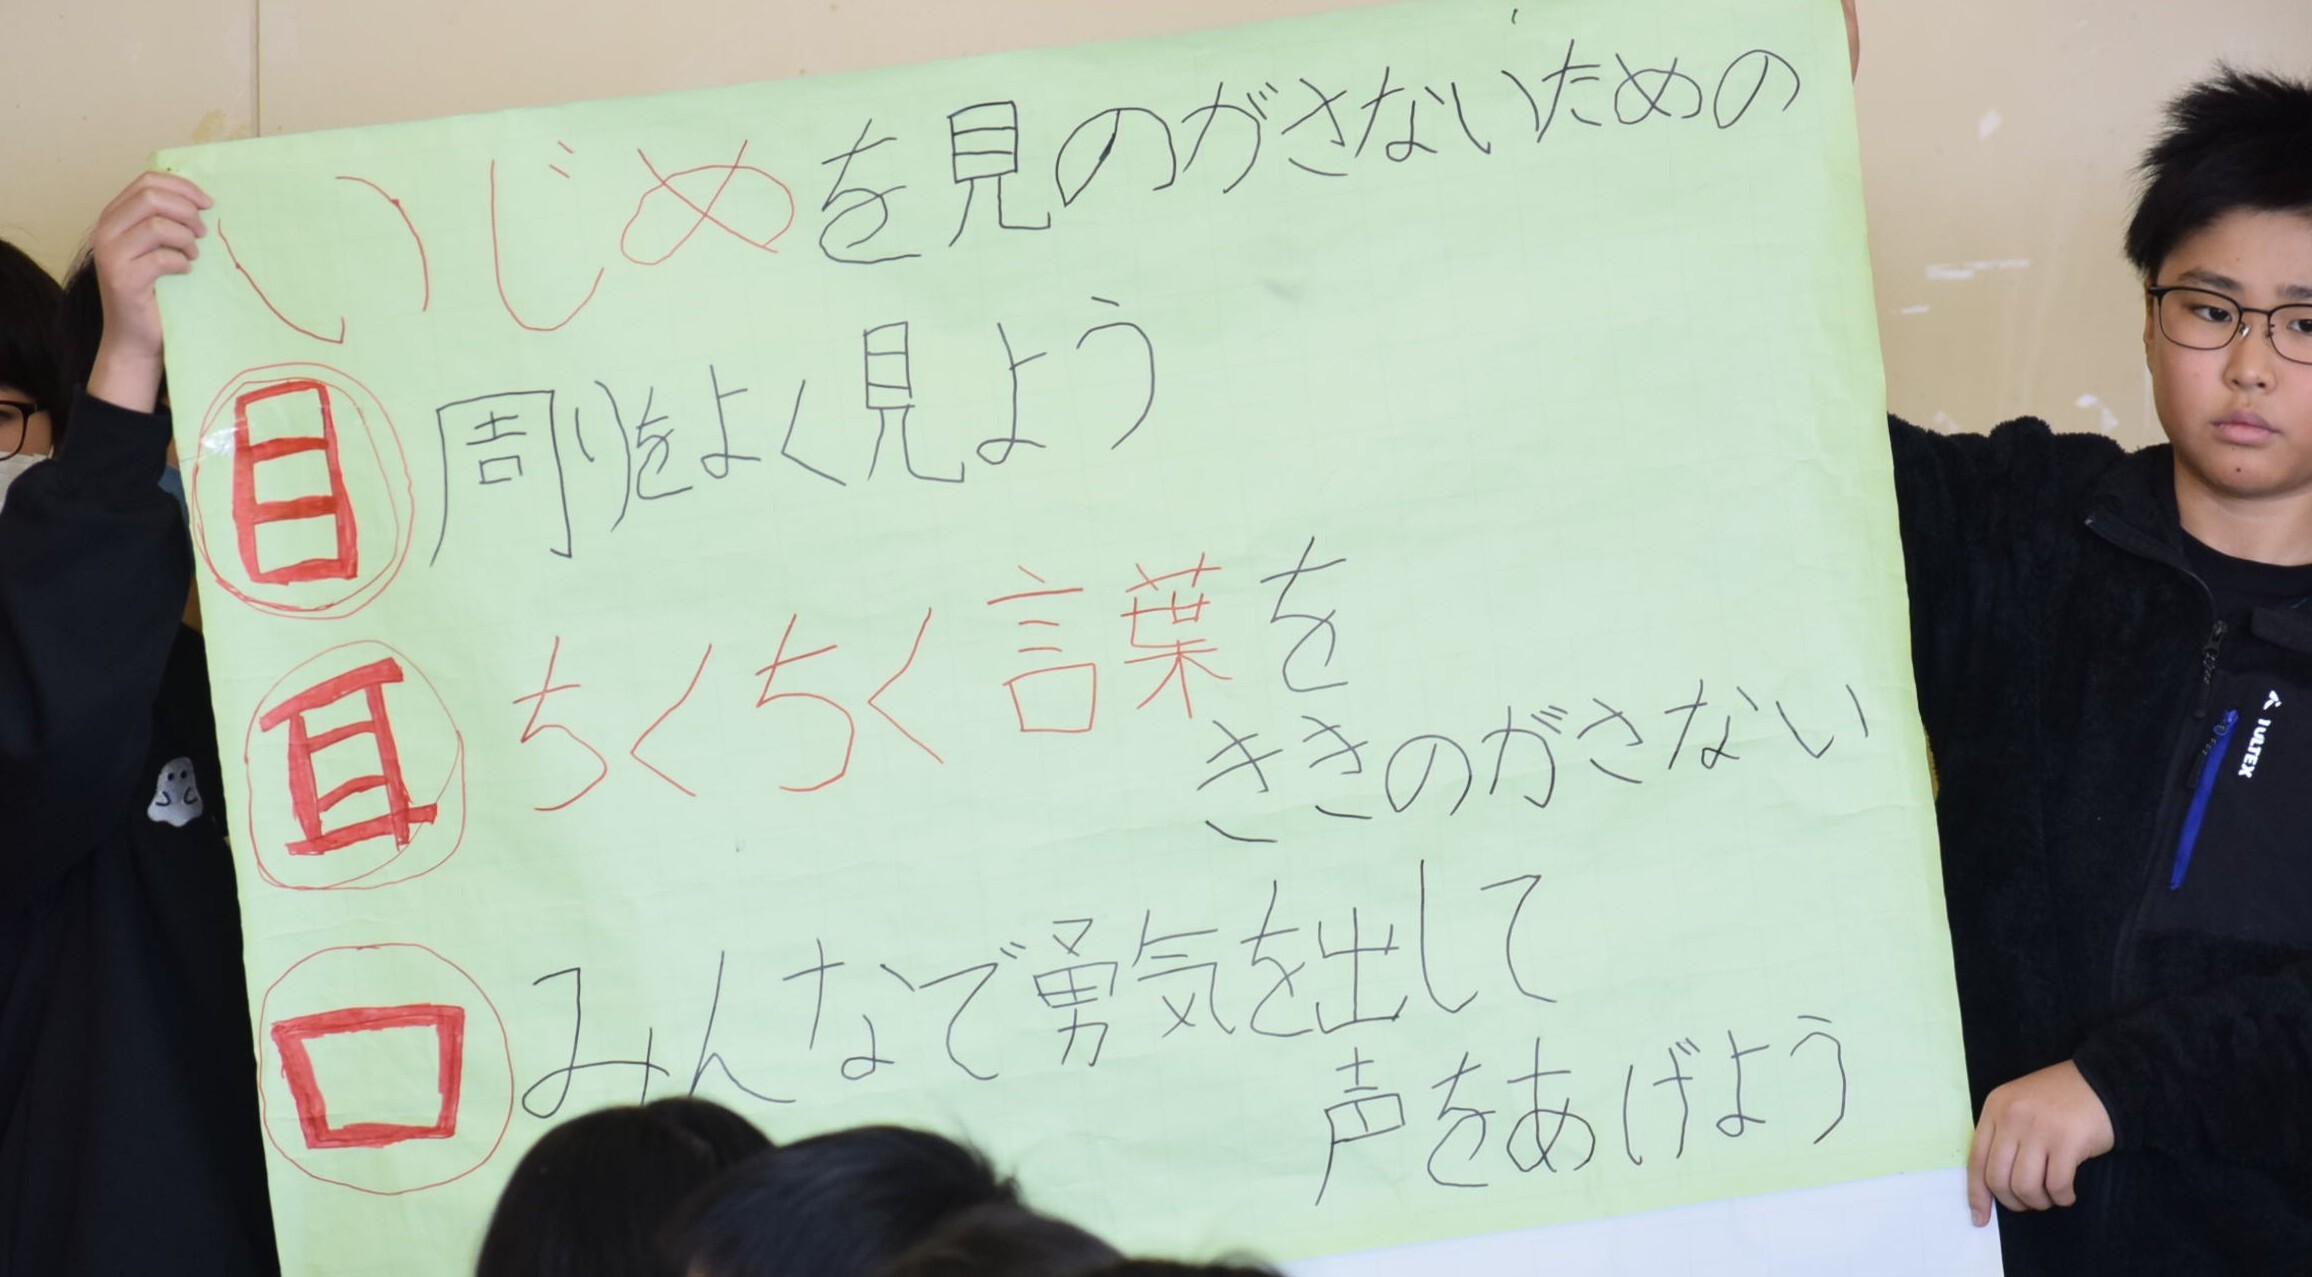 いじめを見のがさないための
目 周りをよく見よう
耳 ちくちく言葉を
ききのがさない
口 みんなで勇気を出して
声をあげよう
IULTEX